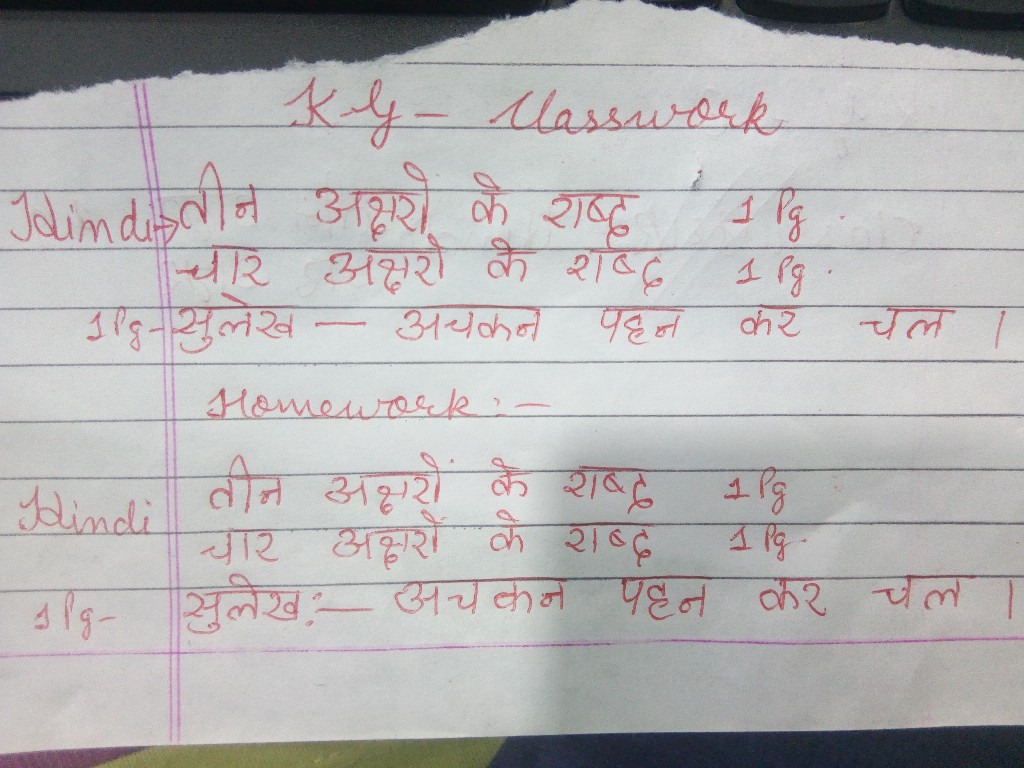 KG - Classwork
Hindi→ तीन अक्षरो के शब्द 1 Pg.
चार अक्षरो के शब्द 1 Pg.
1Pg- सुलेख — अचकन पहन कर चल ।
Homework :-
Hindi तीन अक्षरों के शब्द 1 Pg
चार अक्षरों के शब्द 1 Pg.
1 Pg- सुलेख:— अचकन पहन कर चल ।